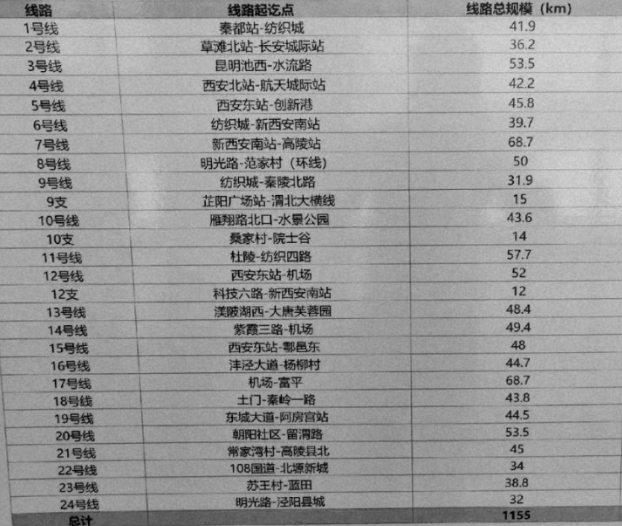 线路 线路起讫点 线路总规模（km）
1号线 秦都站-纺织城 41.9
2号线 草滩北站-长安城际站 36.2
3号线 昆明池西-水流路 53.5
4号线 西安北站-航天城际站 42.2
5号线 西安东站-创新港 45.8
6号线 纺织城-新西安南站 39.7
7号线 新西安南站-高陵站 68.7
8号线 明光路-范家村（环线） 50
9号线 纺织城-秦陵北路 31.9
9支 芷阳广场站-渭北大横线 15
10号线 雁翔路北口-水景公园 43.6
10支 桑家村-院士谷 14
11号线 杜陵-纺织四路 57.7
12号线 西安东站-机场 52
12支 科技六路-新西安南站 12
13号线 渼陂湖西-大唐芙蓉园 48.4
14号线 紫霞三路-机场 49.4
15号线 西安东站-鄠邑东 48
16号线 沣泾大道-杨柳村 44.7
17号线 机场-富平 68.7
18号线 土门-秦岭一路 43.8
19号线 东城大道-阿房宫站 44.5
20号线 朝阳社区-留渭路 53.5
21号线 常家湾村-高陵县北 45
22号线 108国道-北塬新城 34
23号线 苏王村-蓝田 38.8
24号线 明光路-泾阳县城 32
总计 1155